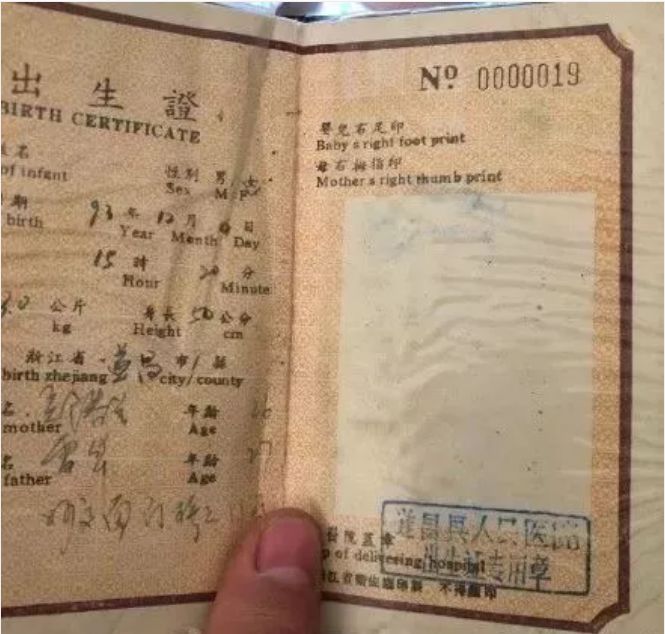 出生證
BIRTH CERTIFICATE
姓名
of infant
性别 男 女
Sex M F
期
birth
93年12月 日
Year Month Day
15時20分
Hour Minute
3.0公斤
kg
身長50公分
Height cm
浙江省 遂昌 市/縣
birth zhejiang city/county
名
mother
年齡
Age
名
father
年齡 27
Age
Nº 0000019
嬰兒右足印
Baby's right foot print
母右拇指印
Mother's right thumb print
遂昌县人民医院
出生证专用章
醫院蓋章
p of delivering hospital
江省衛生廳印製 不得翻印